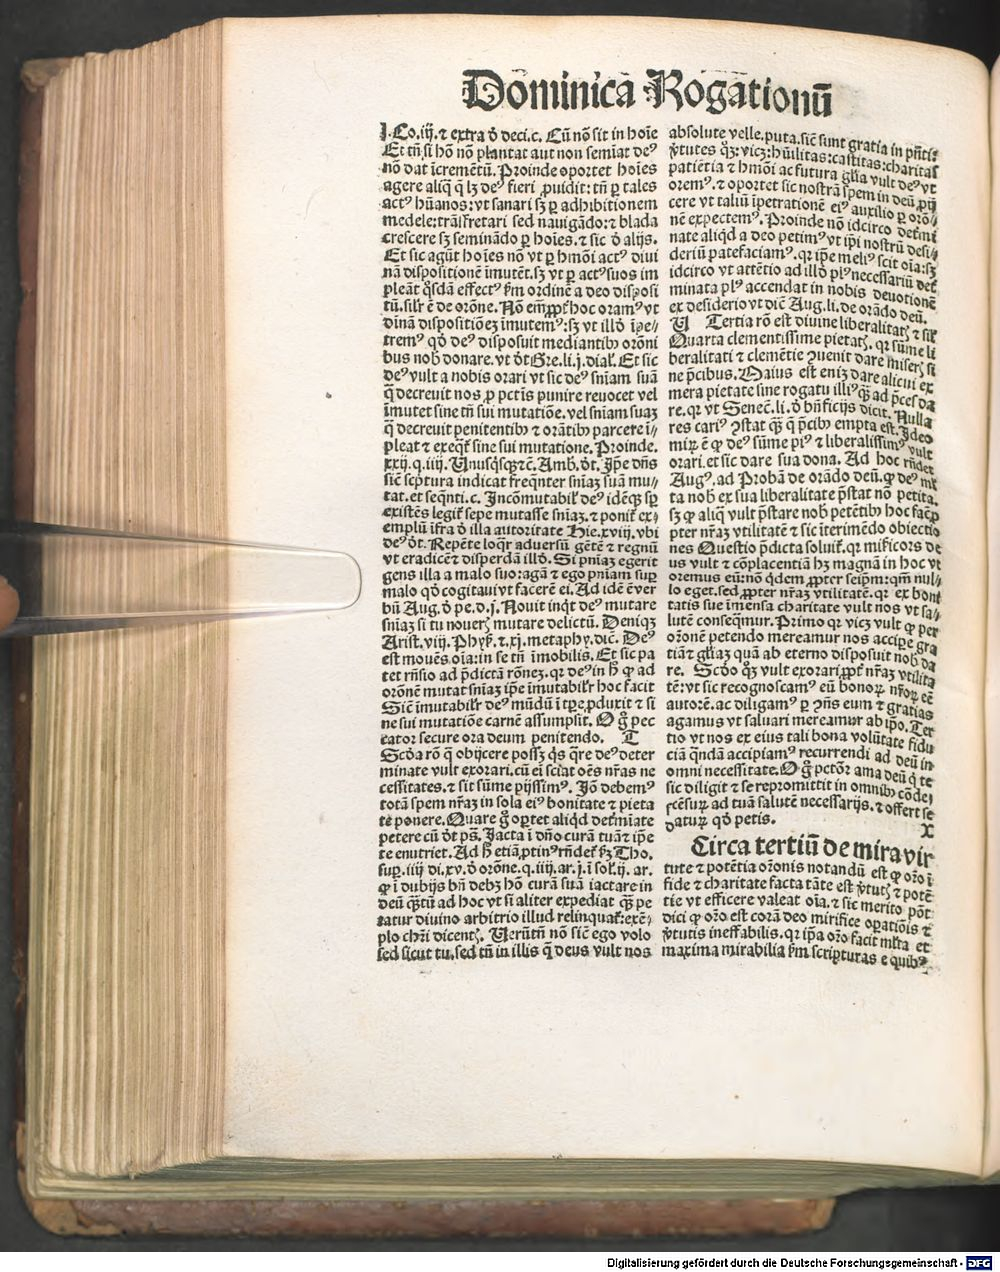 Dōminicā Rogationū
j. Co. iij. ⁊ extra ꝺ̄ deci. c. Cū nō sit in hoīe
Et tn̄ si hō nō plantat aut non semīat deꝰ
nō dat īcremētū. Proinde oportet hoīes
agere aliq̄ q̄ lꝫ deꝰ fieri ꝓuidit: tn̄ ꝑ tales
actꝰ hūanos: vt sanari sꝫ ꝑ adhibitionem
medele: trāsfretari sed nauigādo: ⁊ blada
crescere sꝫ semināndo ꝑ hoīes. ⁊ sic ꝺ̄ alijs.
Et sic agūt hoīes nō vt ꝑ hmōi actꝰ diui
nā dispositionē imutēt. sꝫ vt ꝑ actꝰ suos im
pleāt q̄sdā effectꝰ ẜm ordinē a deo disposi
tū. silr̄ ē de orōne. Nō em̄ ꝓpt̄ hoc oramꝰ vt
dīnā dispositiōeꝫ īmutemꝰ: sꝫ vt illđ īpe-
tremꝰ qđ deꝰ disposuit mediantibꝰ orōni
bus nob̄ donare. vt ꝺ̄t Gre. li. j. dial̄. Et sic
deꝰ vult a nobis orari vt sic deꝰ sn̄iam suā
q̄ decreuit nos ꝓ pctīs punire reuocet vel
īmutet sine tn̄ sui mutatiōe. vel sn̄iam suaꝫ
q̄ decreuit penitentibꝰ ⁊ orātibꝰ parcere ī-
pleat ⁊ exeqt̄ sine sui mutatione. Proinde.
xxij. q. iiij. Unusq̄sqꝫ ⁊c̄. Amb. ꝺ̄t. Ip̄e dn̄s
sic̄ scptura indicat freqn̄ter sn̄iaꝫ suā mu-
tat. et seqn̄ti. c. Incōmutabil̄ deꝰ idēqꝫ sꝑ
existēs legit̄ sepe mutasse sn̄iaꝫ. ⁊ ponit̄ ex-
emplū īfra ꝺ̄ illa autoritate Hie. xviij. vbi
deꝰ ꝺ̄t. Repēte loqr̄ aduersū gētē ⁊ regnū
vt eradicē ⁊ disperdā illđ. Si pn̄iaꝫ egerit
gens illa a malo suo: agā ⁊ ego pn̄iam suꝑ
malo qđ cogitaui vt facerē ei. Ad idē ē ver
bū Aug. ꝺ̄ pe. d. j. Nouit inqt̄ deꝰ mutare
sn̄iaꝫ si tu nouerꝭ mutare delictū. Deniqꝫ
Arist. viij. Phyẜ. ⁊. xj. metaphy. dic̄. Deꝰ
est mouēs oīa: in se tn̄ īmobilis. Et sic pa
tet rn̄sio ad p̄dictā rōneꝫ. qr̄ deꝰ in hͦ ꝙ ad
orōnē mutat sn̄iaꝫ ip̄e imutabilr̄ hoc facit
Sic̄ imutabilr̄ deꝰ mūdū ī tp̄e ꝓduxit ⁊ si
ne sui mutatiōe carnē assumpsit. O g̊ pec
cator secure ora deum penitendo. T
Scđa rō q̄ obijcere possꝫ qs̄ qr̄e deꝰ deter
minate vult exorari. cū ei sciat oēs nr̄as ne
cessitates. ⁊ sit sūme pijssimꝰ. Iō debemꝰ
totā spem nr̄aꝫ in sola eiꝰ bonitate ⁊ pieta
te ponere. Quare g̊ oꝑtet aliqd det̄miate
petere cū ꝺ̄t ps̄. Iacta ī dn̄o curā tuā ⁊ ip̄e
te enutriet. Ad hͦ etiā ꝑtinꝫ rn̄det̄ ẜꝫ Tho.
suꝑ. iiij di. xv. ꝺ̄ orōne. q. iiij. ar. j. ī sol̄. ij. ar.
ꝙ ī dubijs bn̄ debꝫ hō curā suā iactare in
deū q̄stū ad hoc vt si aliter expediat qꝫ pe
tatur diuino arbitrio illud relinquat̄: exē-
plo chr̄i dicentꝭ. Uerūtn̄ nō sic̄ ego volo
sed sicut tu. sed tn̄ in illis q̄ deus vult nos
absolute velle. puta. sic̄ sunt gratia in pn̄ti:
v̄tutes qꝫ: vicꝫ: hūilitas: castitas: charitas
patiētia ⁊ hmōi ac futura gl̄ia vult deꝰ vt
oremꝰ. ⁊ oportet sic nostrā spem in deū ꝓij
cere vt taliū īpetrationē eiꝰ auxilio ꝑ orō-
nē expectemꝰ. Proinde nō idcirco det̄mi
nate aliqd a deo petimꝰ vt ip̄i nostrū desi-
deriū patefaciamꝰ. qr̄ ip̄e meliꝰ scit oīa: sꝫ
idcirco vt attētio ad illđ plꝰ necessariū det̄
minata plꝰ accendat in nobis deuotionē
ex desiderio vt dic̄ Aug. li. de orādo deū.
U Tertia rō est diuine liberalitatꝭ ⁊ sil̄
Quarta clementissime pietatꝭ. qr̄ sūme li
beralitati ⁊ clemētie ꝯuenit dare miserꝭ si
ne p̄cibus. Maius est enīꝫ dare alicui ex
mera pietate sine rogatu illiꝰ qꝫ ad p̄ces da
re. qr̄ vt Senec̄. li. ꝺ̄ bn̄ficijs dicit. Nulla
res cariꝰ ꝯstat qꝫ q̄ p̄cibꝰ empta est. Ideo
miꝝ ē ꝙ deꝰ sūme piꝰ ⁊ liberalissimꝰ vult
orari. et sic dare sua dona. Ad hoc rn̄det
Augꝰ. ad Probā de orādo deū. ꝙ deꝰ ml̄
ta nob̄ ex sua liberalitate p̄stat nō petita.
sꝫ ꝙ aliq̄ vult p̄stare nob̄ petētibꝰ hoc fac̄ ꝓ
pter nr̄aꝫ vtilitatē ⁊ sic īterimēdo obiectio
nes Questio p̄dicta soluit̄. qr̄ mīricors de
us vult ⁊ cōplacentiā hꝫ magnā in hoc vt
oremus eū: nō qdem ꝓpter seip̄m: qm̄ nul-
lo eget. sed ꝓpter nr̄aꝫ vtilitatē. qr̄ ex boni
tatis sue īmensa charitate vult nos vt sa-
lutē conseq̄mur. Primo qr̄ vicꝫ vult ꝙ per
orōnē petendo mereamur nos accipe gra
tiā ⁊ gl̄iaꝫ quā ab eterno disposuit nob̄ da
re. Scđo qꝫ vult exorari ꝓpt̄ nr̄aꝫ vtilita
tē: vt sic recognoscamꝰ eū bonoꝝ nr̄oꝝ eē
autorē. ac diligamꝰ ꝑ ꝯn̄s eum ⁊ gratias
agamus vt saluari mereamur ab ip̄o. Ter
tio vt nos ex eius tali bona volūtate fidu
ciā quādā accipiamꝰ recurrendi ad deū in
omni necessitate. O g̊ pctōr ama deū q̄ te
sic diligit ⁊ se repromittit in omnibꝰ cōde-
scēsuꝝ ad tuā salutē necessarijs. ⁊ offert se
daturꝝ qđ petis. X
Circa tertiū de mira vir
tute ⁊ potētia orōnis notandū est ꝙ orō ī
fide ⁊ charitate facta tāte est v̄tutꝭ ⁊ potē
tie vt efficere valeat oīa. ⁊ sic merito pōt
dici ꝙ orō est corā deo mirifice oꝑatiōis ⁊
v̄tutis ineffabilis. qr̄ ip̄a orō facit ml̄ta et
maxima mirabilia ẜm scripturas e quibꝰ
Digitalisierung gefördert durch die Deutsche Forschungsgemeinschaft - DFG